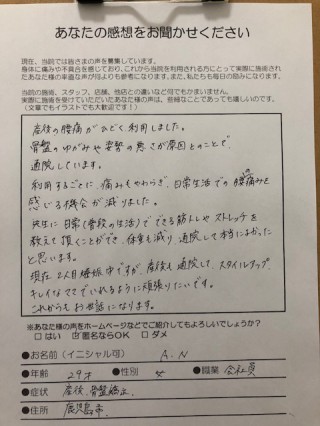 あなたの感想をお聞かせください
現在、当院では皆さまの声を募集しています。
身体に痛みや不具合を感じており、これから当院を利用される方にとって実際に施術され
たあなた様の率直な声が何よりも参考になります。また、私たちも毎日の励みになります。
当院の施術、スタッフ、店舗、他店との違いなど何でもかまいません。
実際に施術を受けていただいたあなた様の声は、些細なことであっても嬉しいのです。
(文章でもイラストでも大歓迎です!)
産後の腰痛がひどく利用しました。
骨盤のゆがみや姿勢の悪さが原因とのことで、
通院しています。
利用するごとに、痛みもやわらぎ、日常生活での腰痛みを
感じる機会が減りました。
先生に日常(普段の生活)でできる筋トレやストレッチを
教えて頂くことができ、体重も減り、通院して本当によかった
と思います。
現在2人目妊娠中ですが、産後も通院して、スタイルアップ、
キレイなママでいれるように頑張りたいです。
これからもお世話になります。
※あなた様の声をホームページなどでご紹介してもよろしいでしょうか?
□ はい ☑ 匿名ならOK □ ダメ
●お名前(イニシャル可) A.N
●年齢 29才 ●性別 女 ●職業 会社員
●症状 産後、骨盤矯正
●住所 鹿児島市